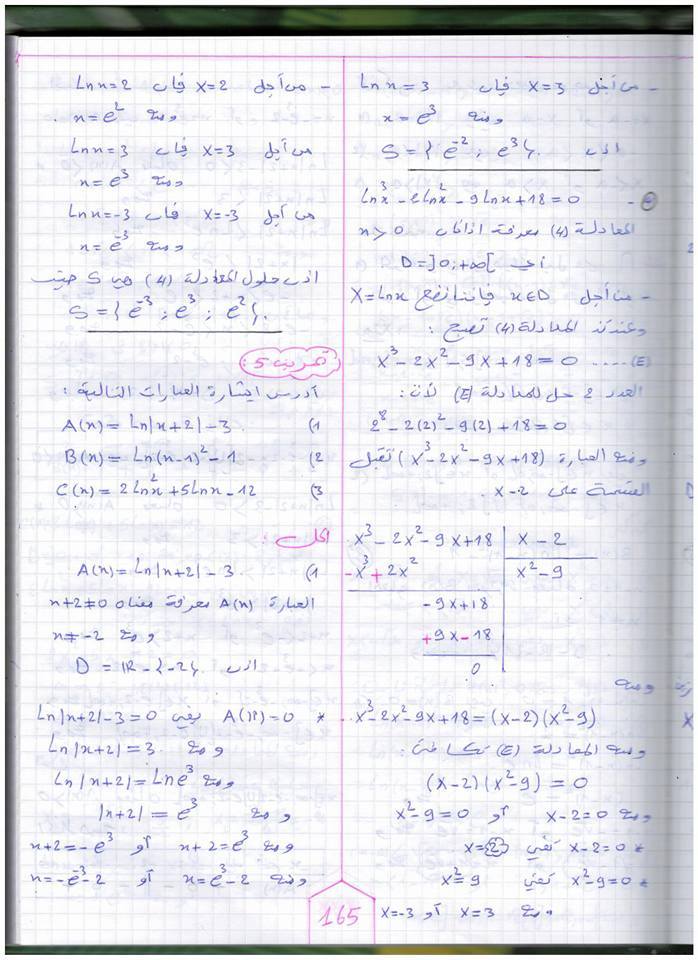 - من أجل X=3 فإن Ln x = 3
ومنه x = e³
اذن S = { e⁻² ; e³ }.
④ - ln x³ - 2 ln x² - 9 ln x + 18 = 0
المعادلة (4) معرفة اذا كان x > 0
أي D = ]0; +∞[
- من أجل x∈D فإننا نضع X = ln x
وعندئذ المعادلة (4) تصبح :
x³ - 2x² - 9x + 18 = 0 .... (E)
العدد 2 حل للمعادلة (E) لأن:
2³ - 2(2)² - 9(2) + 18 = 0
ومنه العبارة (x³ - 2x² - 9x + 18) تقبل
القسمة على x - 2.
x³ - 2x² - 9x + 18 | x - 2
-x³ + 2x² | x² - 9
- 9x + 18
+ 9x - 18
0
ومنه
x³ - 2x² - 9x + 18 = (x-2)(x² - 9)
ومنه المعادلة (E) تكافئ :
(x-2)(x² - 9) = 0
ومنه x-2=0 أو x² - 9 = 0
* x-2=0 تعني x=2
* x² - 9 = 0 تعني x² = 9
ومنه x = 3 أو x = -3
- من أجل X=2 فإن Ln x = 2
ومنه x = e²
من أجل X=3 فإن Ln x = 3
ومنه x = e³
من أجل X=-3 فإن Ln x = -3
ومنه x = e⁻³
اذن حلول المعادلة (4) هي S حيث
S = { e⁻³ ; e³ ; e² }.
تمرين 5 :
أدرس إشارة العبارات التالية :
1) A(x) = Ln|x+2| - 3
2) B(x) = Ln(x-1)² - 1
3) C(x) = 2 ln x² + 5 ln x - 12
الحل :
1) A(x) = Ln|x+2| - 3.
العبارة A(x) معرفة معناه x+2 ≠ 0
ومنه x ≠ -2
اذن D = IR - {-2}.
* A(x) = 0 يعني Ln|x+2| - 3 = 0
ومنه Ln|x+2| = 3
ومنه Ln|x+2| = Ln e³
ومنه |x+2| = e³
ومنه x+2 = e³ أو x+2 = -e³
ومنه x = e³ - 2 أو x = -e⁻³ - 2
165